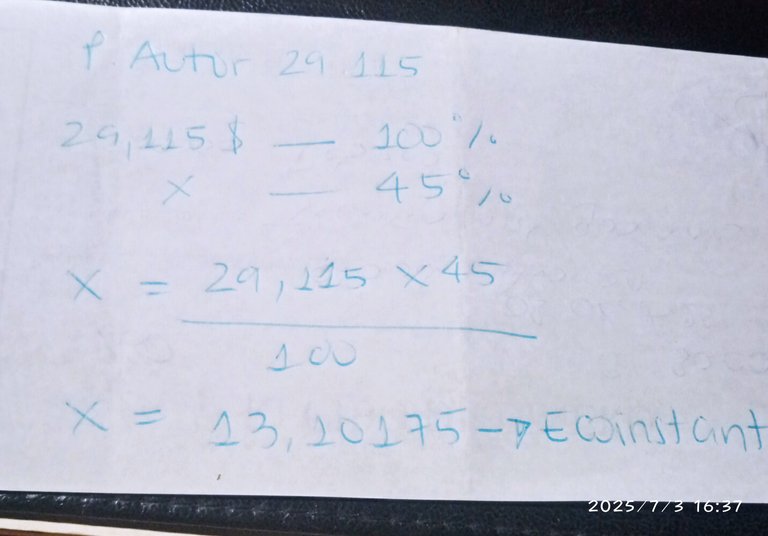 P. Autor 29.115
29,115$ — 100%
x — 45%
x = 29,115 x 45
100
x = 13,10175 → Ecoinstant
2025/7/3 16:37